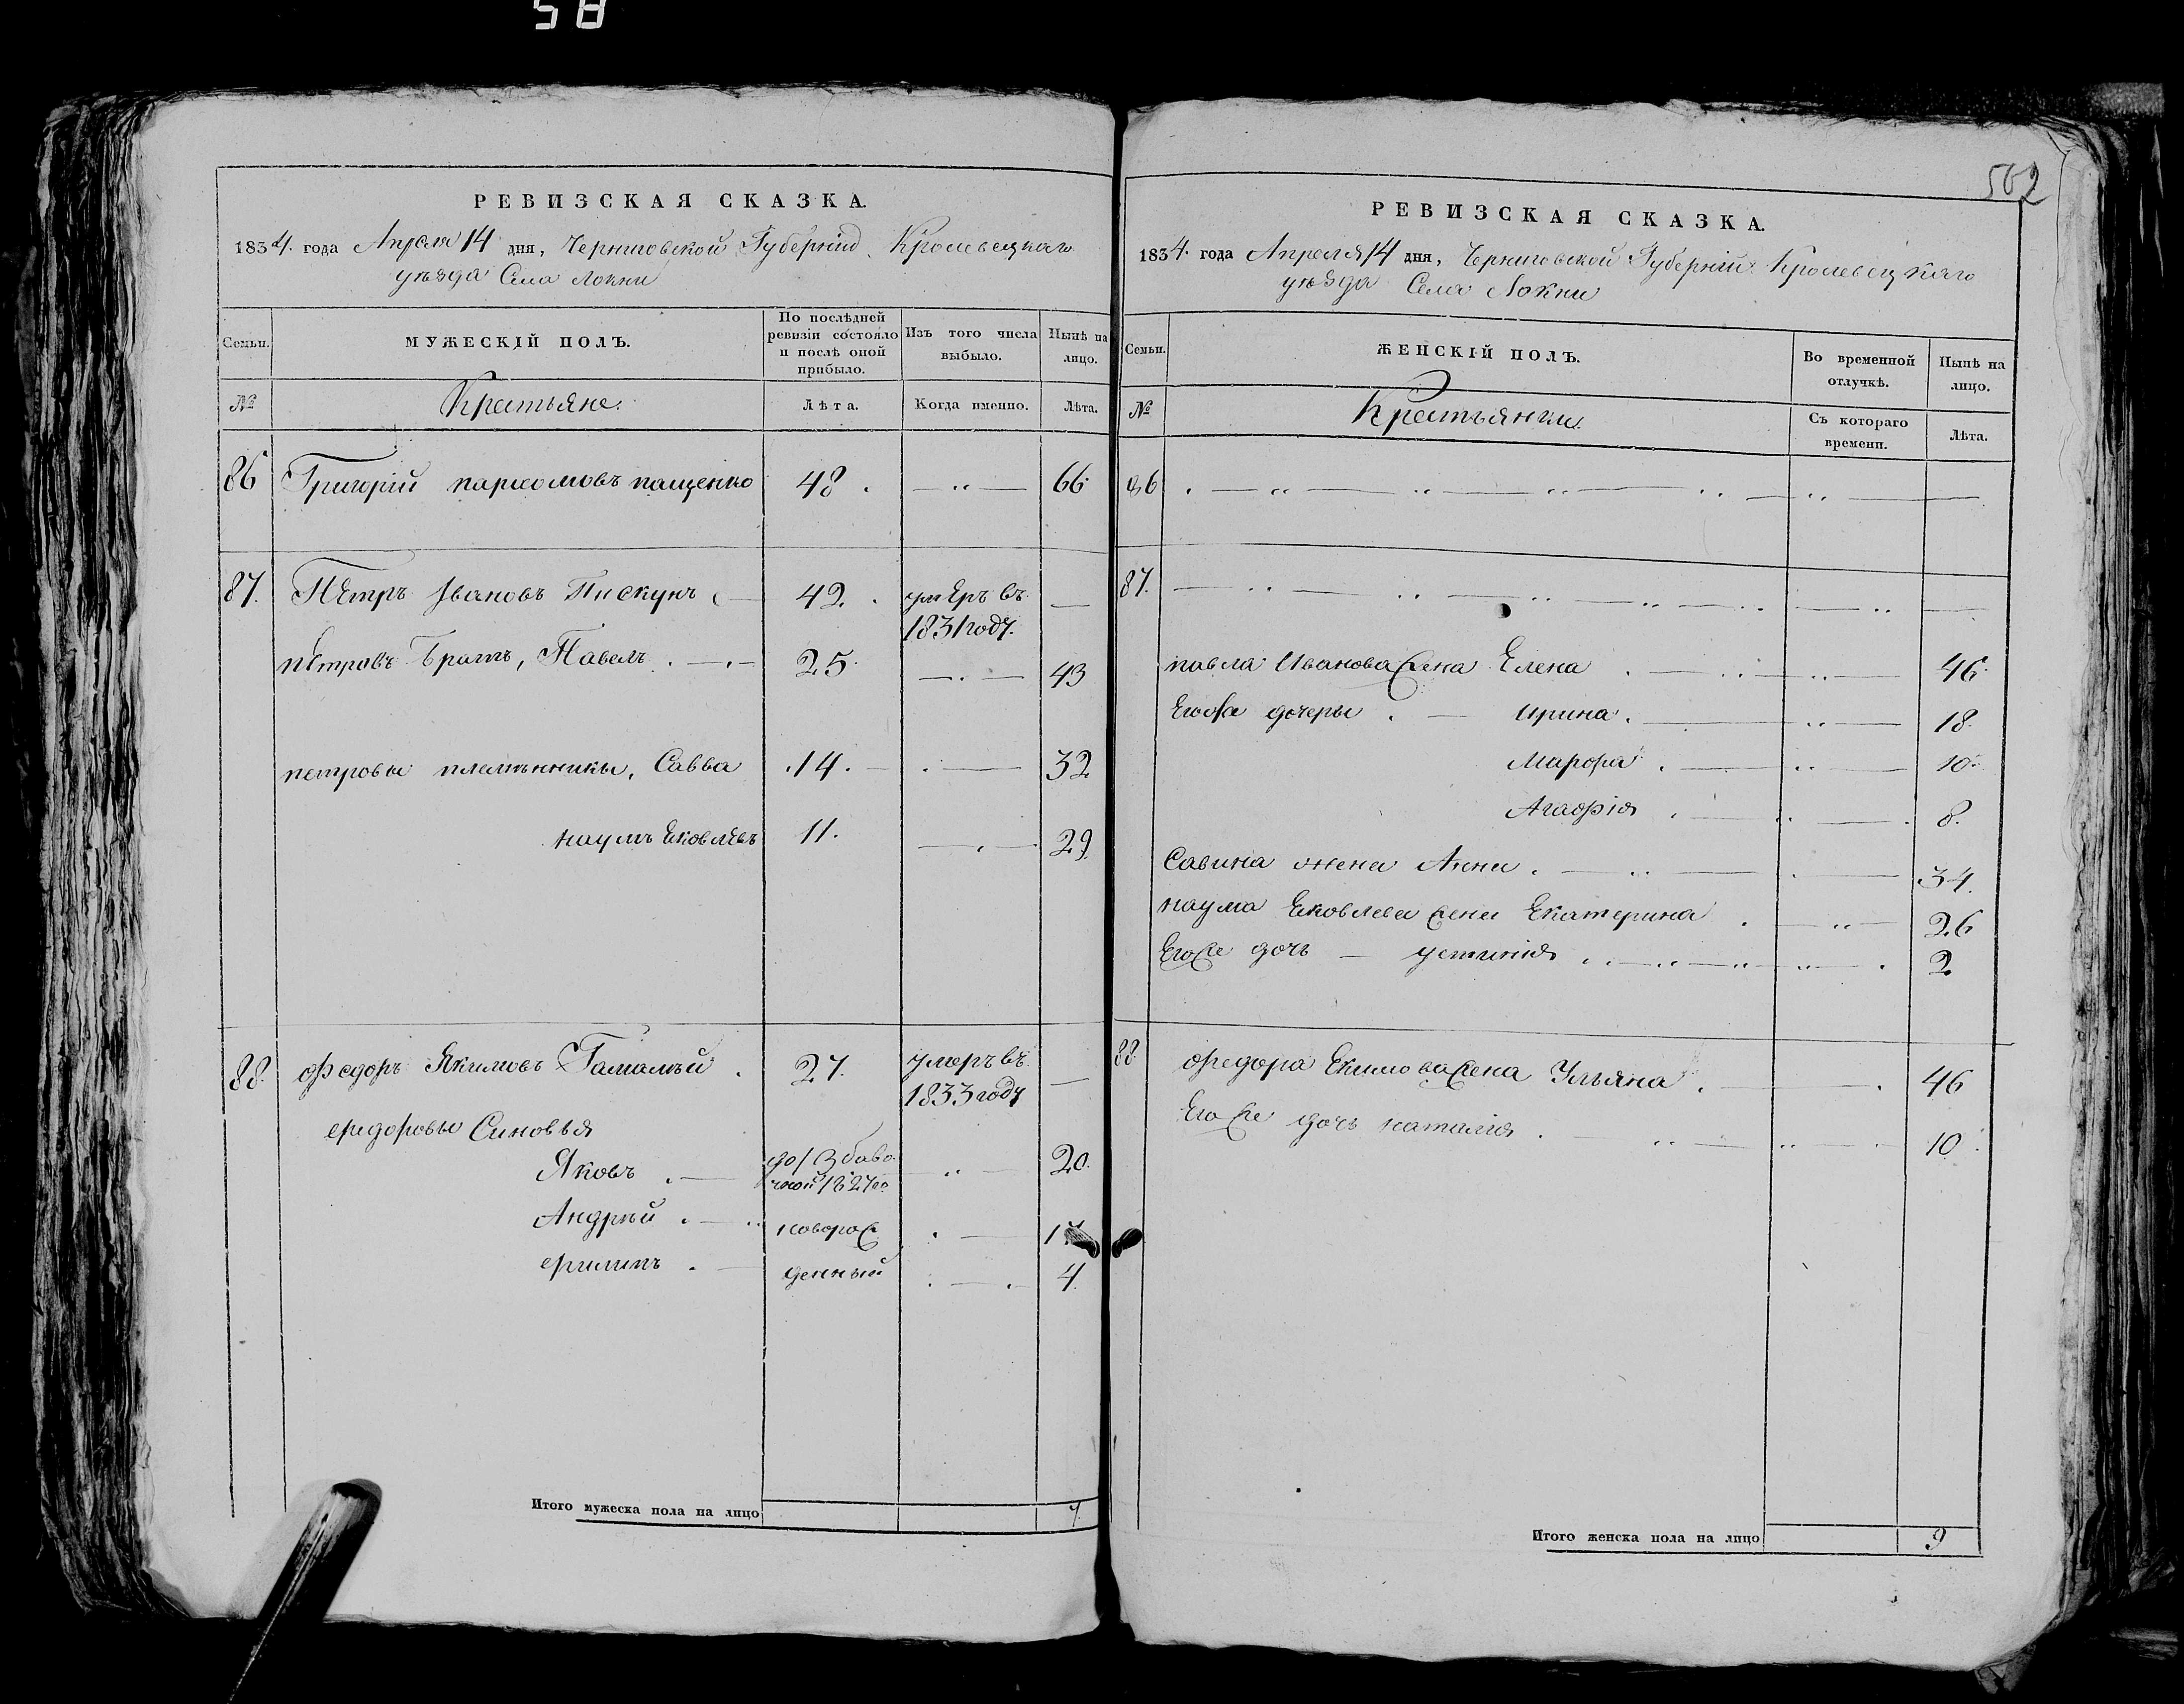 58
РЕВИЗСКАЯ СКАЗКА.
1834. года Апреля 14 дня, Черниговской Губернии Кролевецкаго
уѣзда Села Локни
Семьи.
МУЖЕСКІЙ ПОЛЪ.
По послѣдней
ревизіи состояло
и послѣ оной
прибыло.
Изъ того числа
выбыло.
Нынѣ на
лицо.
№
Крестьяне.
Лѣта.
Когда именно.
Лѣта.
86 Григорій пархомовъ пащенко 48. 66
87. Пётръ Ивановъ Пискунъ 42. умеръ въ
1831 году.
пётровъ Братъ, Павелъ 25. 43
петровы племѣнники, Савва 14. 32
наумъ Ековлевъ 11. 29
88. Федоръ Якимовъ Гамалѣй 27. умеръ въ
1833 году
федоровы Синовья
Яковъ 20.
чной 1827го
Андрѣй новорож
филипъ денный 4
Итого мужеска пола на лицо 7.
502
РЕВИЗСКАЯ СКАЗКА.
1834. года Апреля 14 дня, Черниговской Губерніи Кролевецкаго
уѣзда Села Локни
Семьи.
ЖЕНСКІЙ ПОЛЪ.
Во временной
отлучкѣ.
Нынѣ на
лицо.
№
Крестьянки
Съ котораго
времени.
Лѣта.
86
87.
павла Иванова жена Елена 46
Егоже дочеры Ирина 18.
Марфа 10
Агафія 8.
Савина жена Анна 34.
наума Ековлева жена Екатерина 26
Егоже дочь устинія 2
88 федора Екимова жена Ульяна 46
Егоже дочь наталія 10
Итого женска пола на лицо 9